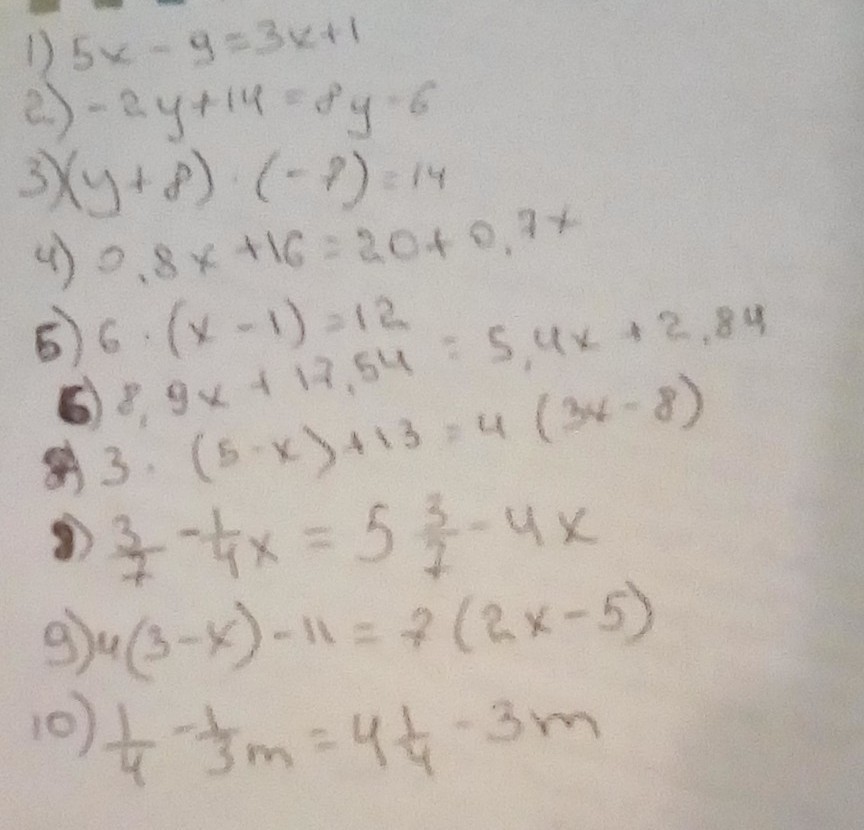 1) 5x - 9 = 3x + 1
2) - 2y + 14 = 8y - 6
3) (y + 8) · (- 7) = 14
4) 0,8x + 16 = 20 + 0,7x
5) 6 · (x - 1) = 12
6) 8,9x + 17,54 = 5,4x + 2,84
3 · (5 - x) + 13 = 4 (3x - 8)
8) 3/7 - 1/4 x = 5 3/7 - 4x
9) 4(3 - x) - 11 = 7 (2x - 5)
10) 1/4 - 1/3 m = 4 1/4 - 3m